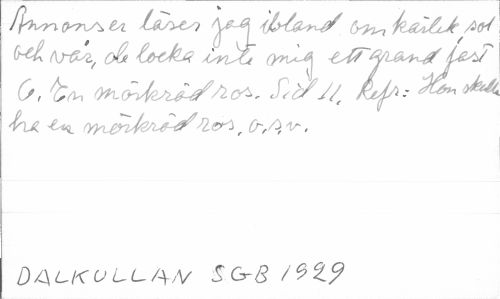 Annonser läser jag ibland om kärlek, sol
och vår, de locka inte mig ett grand fast
6. En mörkröd ros. Sid 11. Refr: Hon skulle
ha en mörkröd ros, o.s.v.
DALKULLAN SGB 1929